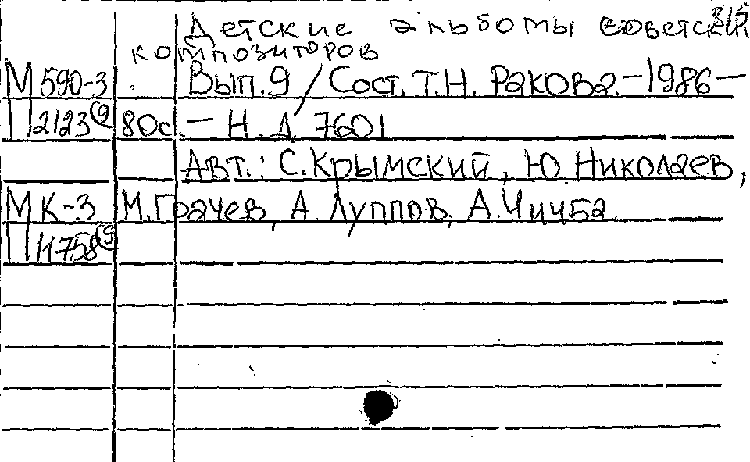 Детские альбомы советских
композиторов
М 590-3 Вып. 9 / Сост. Т.Н. Ракова. – 1986 –
П 2123(9) 80с. – Н.д. 7601
Авт.: С. Крымский, Ю. Николаев,
МК-3 М. Грачев, А. Луппов, А. Чичба